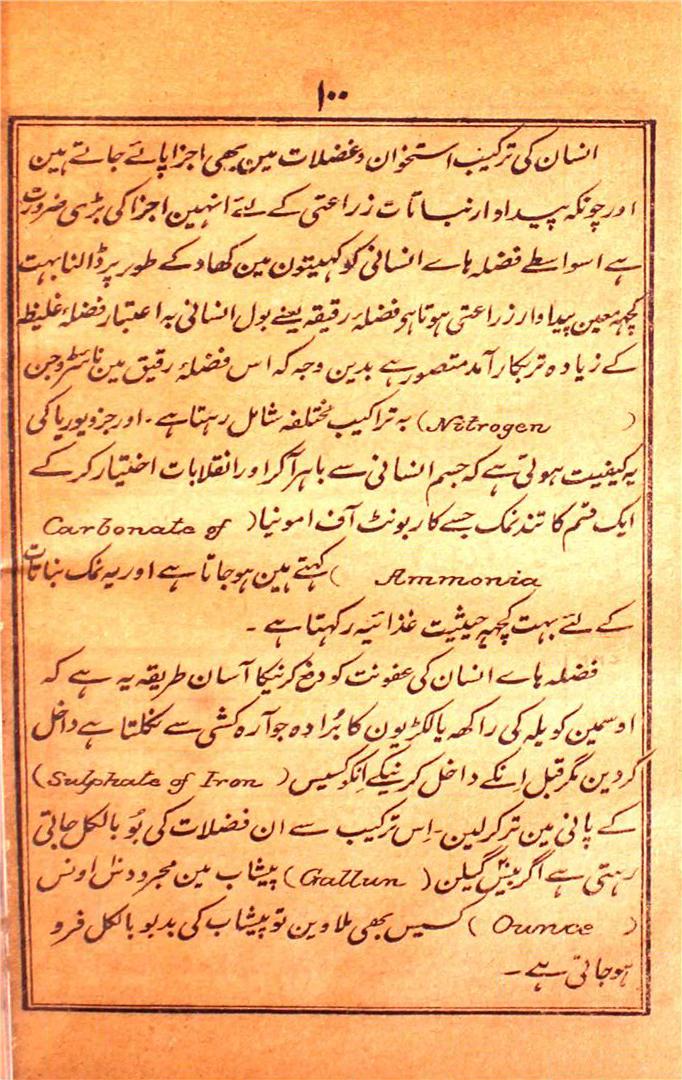 ۱۰۰
انسان کی ترکیب استخوان و عضلات مین بھی اجزا پائے جاتے ہین
اور چونکہ پیداوار نباتات زراعتی کے لئے انہین اجزا کی بڑی ضرورت
ہے اسواسطے فضلہ ہاے انسانی کو کہیتون مین کھاد کے طور پر ڈالنا بہت
کچہہ معین پیداوار زراعتی ہوتا ہی فضلۂ رقیقہ یعنے بول انسانی بہ اعتبار فضلۂ غلیظ
کے زیادہ تر بکار آمد متصور ہے بدین وجہ کہ اس فضلۂ رقیق مین نائٹروجن
(Nitrogen) بہ تراکیب مختلفہ شامل رہتا ہے۔ اور جزو یوریا کی
یہ کیفیت ہوتی ہے کہ جسم انسانی سے باہر آکر اور انقلابات اختیار کر کے
ایک قسم کا تند نمک جسے کاربونٹ آف امونیا (Carbonate of
Ammonia) کہتے ہین ہو جاتا ہے اور یہ نمک نباتات
کے لئے بہت کچہہ حیثیت غذائیہ رکہتا ہے ۔
فضلہ ہاے انسان کی عفونت کو دفع کرنیکا آسان طریقہ یہ ہے کہ
اوسمین کویلہ کی راکھہ یا لکڑیون کا بُرادہ جو آرہ کشی سے نکلتا ہے داخل
کردین مگر قبل اِنکے داخل کرنیکے اِنکو کسیس (Sulphate of Iron)
کے پانی مین تر کرلین۔ اِس ترکیب سے ان فضلات کی بُو بالکل جاتی
رہتی ہے اگر بیس گیلن (Gallun) پیشاب مین مجرد دس اونس
(Ounce) کسیس بھی ملاوین تو پیشاب کی بدبو بالکل فرو
ہو جاتی ہے ۔